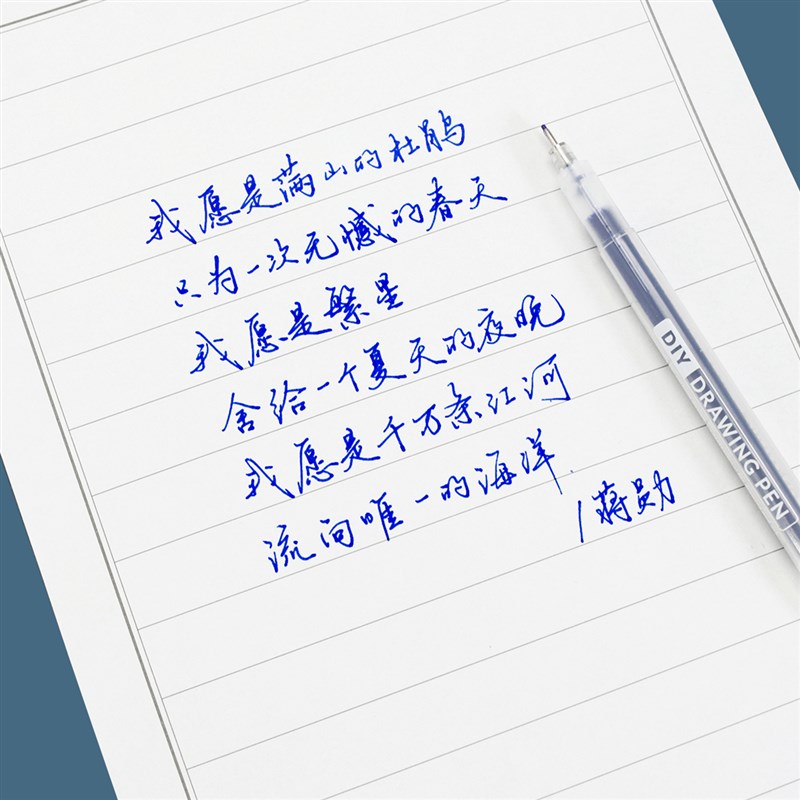 我愿是满山的杜鹃
只为一次无憾的春天
我愿是繁星
舍给一个夏天的夜晚
我愿是千万条江河
流向唯一的海洋
/蒋勋
DIY DRAWING PEN